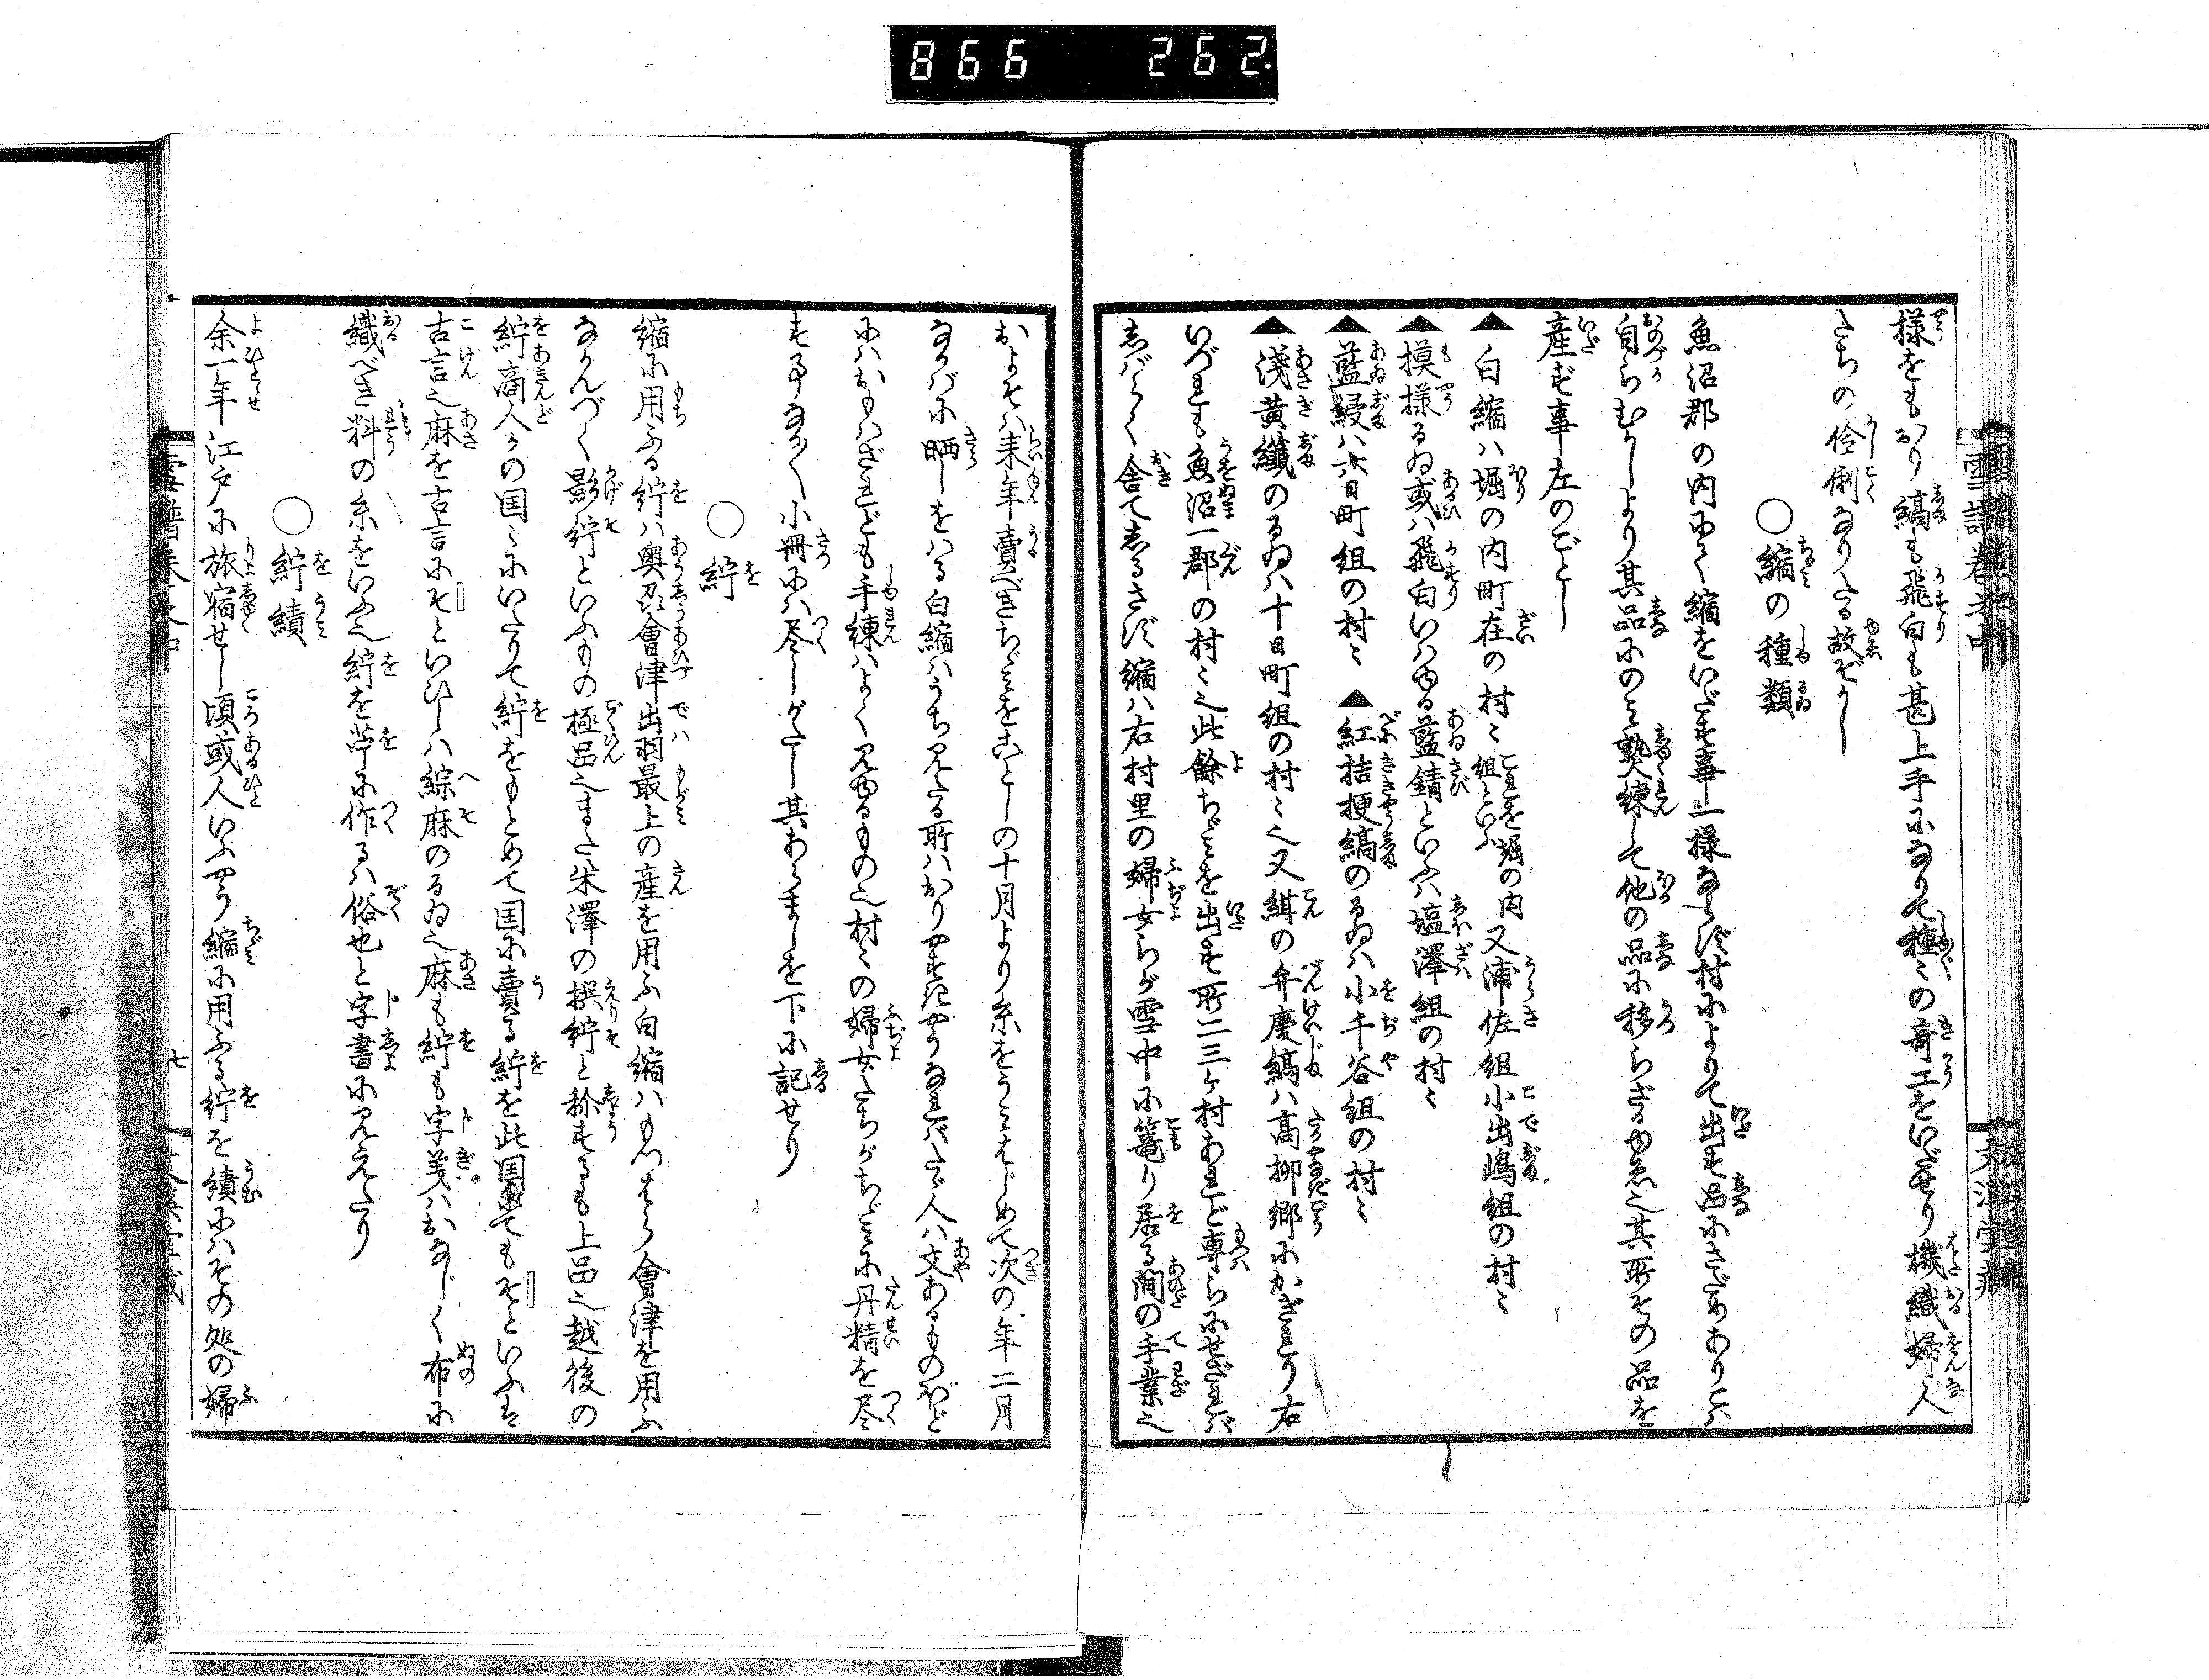 866 262.
様をもおり縞も飛白も甚上手になりて種〻の奇工をいだせり機織婦人
たちの伶俐なりたる故ぞかし
○縮の種類
魚沼郡の内にて縮をいだす事一様ならず村によりて出す品にさだめありこは
自らむかしより其品にのみ熟練して他の品に移らざるゆゑ也其所その品を
産ず事左のごとし
▲白縮ハ堀の内町在の村〻これを堀の内組といふ又浦佐組小出嶋組の村〻
▲摸様るゐ或ハ飛白いはゆる藍錆といふハ塩澤組の村〻
▲藍縞ハ六日町組の村〻▲紅桔梗縞のるゐハ小千谷組の村〻
▲淺黄纎のるゐハ十日町組の村〻也又紺の弁慶縞ハ高柳郷にかぎれり右
いづれも魚沼一郡の村〻也此餘ちゞみを出す所二三ケ村あれど専らにせざれば
しばらく舎てしるさず縮ハ右村里の婦女らが雪中に籠り居る間の手業也
雪譜巻之中
文溪堂藏
およそハ来年賣べきちゞみをことしの十月より糸をうみはじめて次の年二月
なかばに晒しをはる白縮ハうち見たる所ハおりやすきやうなればたゞ人ハ文あるものほど
にハおもハざれども手練ハよく見ゆるもの也村〻の婦女たちがちゞみに丹精を尽
す事なか〳〵小冊にハ尽しがたし其あらましを下に記せり
○紵
縮に用ふる紵ハ奥刕會津出羽最上の産を用ふ白縮ハもつはら會津を用ふ
なかんづく影紵といふもの極品也また米澤の撰紵と称するも上品也越後の
紵商人かの国〻にいたりて紵をもとめて国に賣る紵を此国にてもそといふは
古言也麻を古言にそといひしハ綜麻のるゐ也麻も紵も字義ハおなじく布に
織べき料の糸をいふ也紵を苧に作るハ俗也と字書に見えたり
○紵績
余一年江戸に旅宿せし頃或人いふやう縮に用ふる紵を績にハその処の婦
七